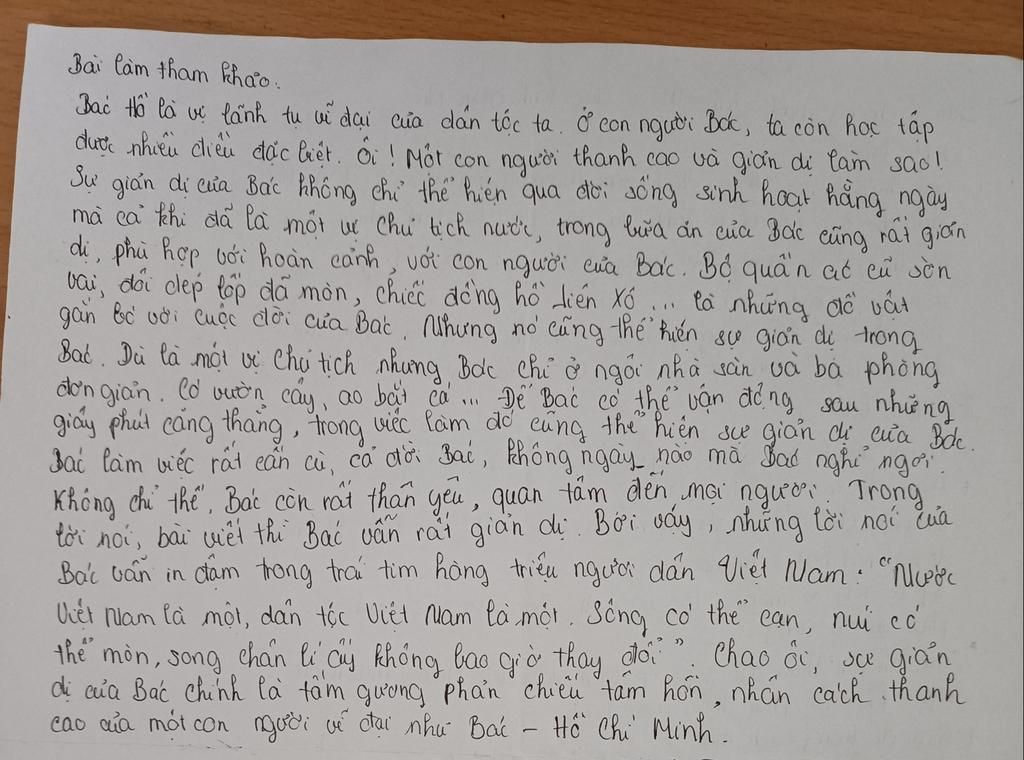 Bài làm tham khảo.
Bác Hồ là vị lãnh tụ vĩ đại của dân tộc ta. Ở con người Bác, ta còn học tập
được nhiều điều đặc biệt. Ôi! Một con người thanh cao và giản dị làm sao!
Sự giản dị của Bác không chỉ thể hiện qua đời sống sinh hoạt hằng ngày
mà cả khi đã là một vị Chủ tịch nước, trong bữa ăn của Bác cũng rất giản
dị, phù hợp với hoàn cảnh, với con người của Bác. Bộ quần áo cũ sờn
vai, đôi dép lốp đã mòn, chiếc đồng hồ Liên Xô ... là những đồ vật
gắn bó với cuộc đời của Bác. Nhưng nó cũng thể hiện sự giản dị trong
Bác. Dù là một vị Chủ tịch nhưng Bác chỉ ở ngôi nhà sàn và ba phòng
đơn giản. Có vườn cây, ao bắt cá ... Để Bác có thể vận động sau những
giây phút căng thẳng, trong việc làm đó cũng thể hiện sự giản dị của Bác.
Bác làm việc rất cần cù, cả đời Bác, không ngày nào mà Bác nghỉ ngơi.
Không chỉ thế, Bác còn rất thân yêu, quan tâm đến mọi người. Trong
lời nói, bài viết thì Bác vẫn rất giản dị. Bởi vậy, những lời nói của
Bác vẫn in đậm trong trái tim hàng triệu người dân Việt Nam: "Nước
Việt Nam là một, dân tộc Việt Nam là một. Sông có thể cạn, núi có
thể mòn, song chân lí ấy không bao giờ thay đổi". Chao ôi, sự giản
dị của Bác chính là tấm gương phản chiếu tâm hồn, nhân cách thanh
cao của một con người vĩ đại như Bác - Hồ Chí Minh.